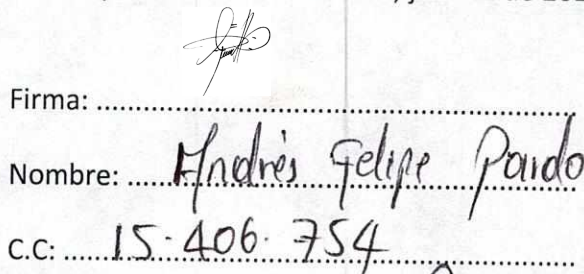 Firma: ..........
Nombre: Andrés Felipe Pardo
C.C: 15.406.754